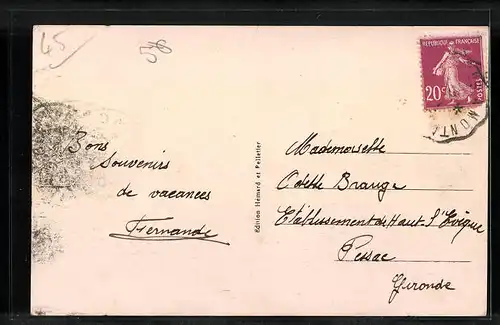 45
58
RÉPUBLIQUE FRANÇAISE
20c
POSTES
MONTA
Bons
Souvenirs
de vacances
Fernande
Edition Hémard et Pelletier
Mademoiselle
Odette Brange
Etablissement de Haut-l'Evêque
Pessac
Gironde